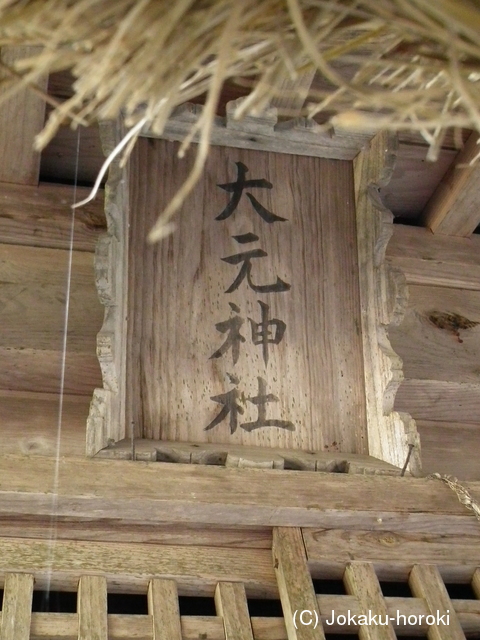 大元神社
(C) Jokaku-horoki